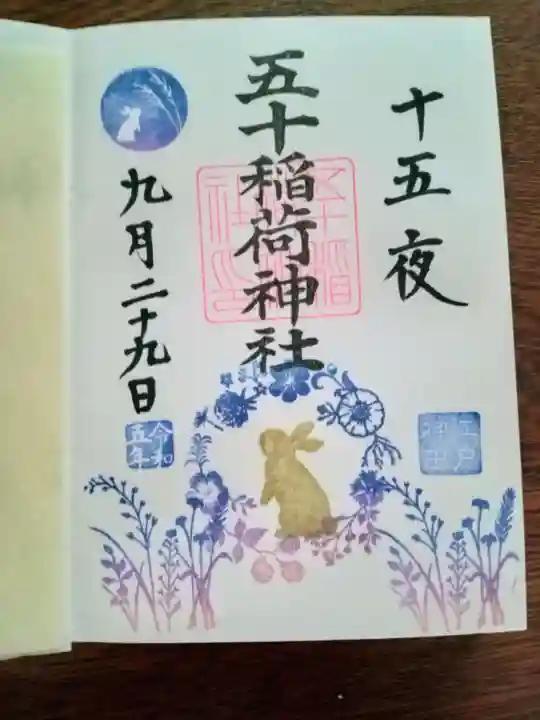 十五夜
江戸
神田
五十稲荷神社
九月二十九日
令和
五年